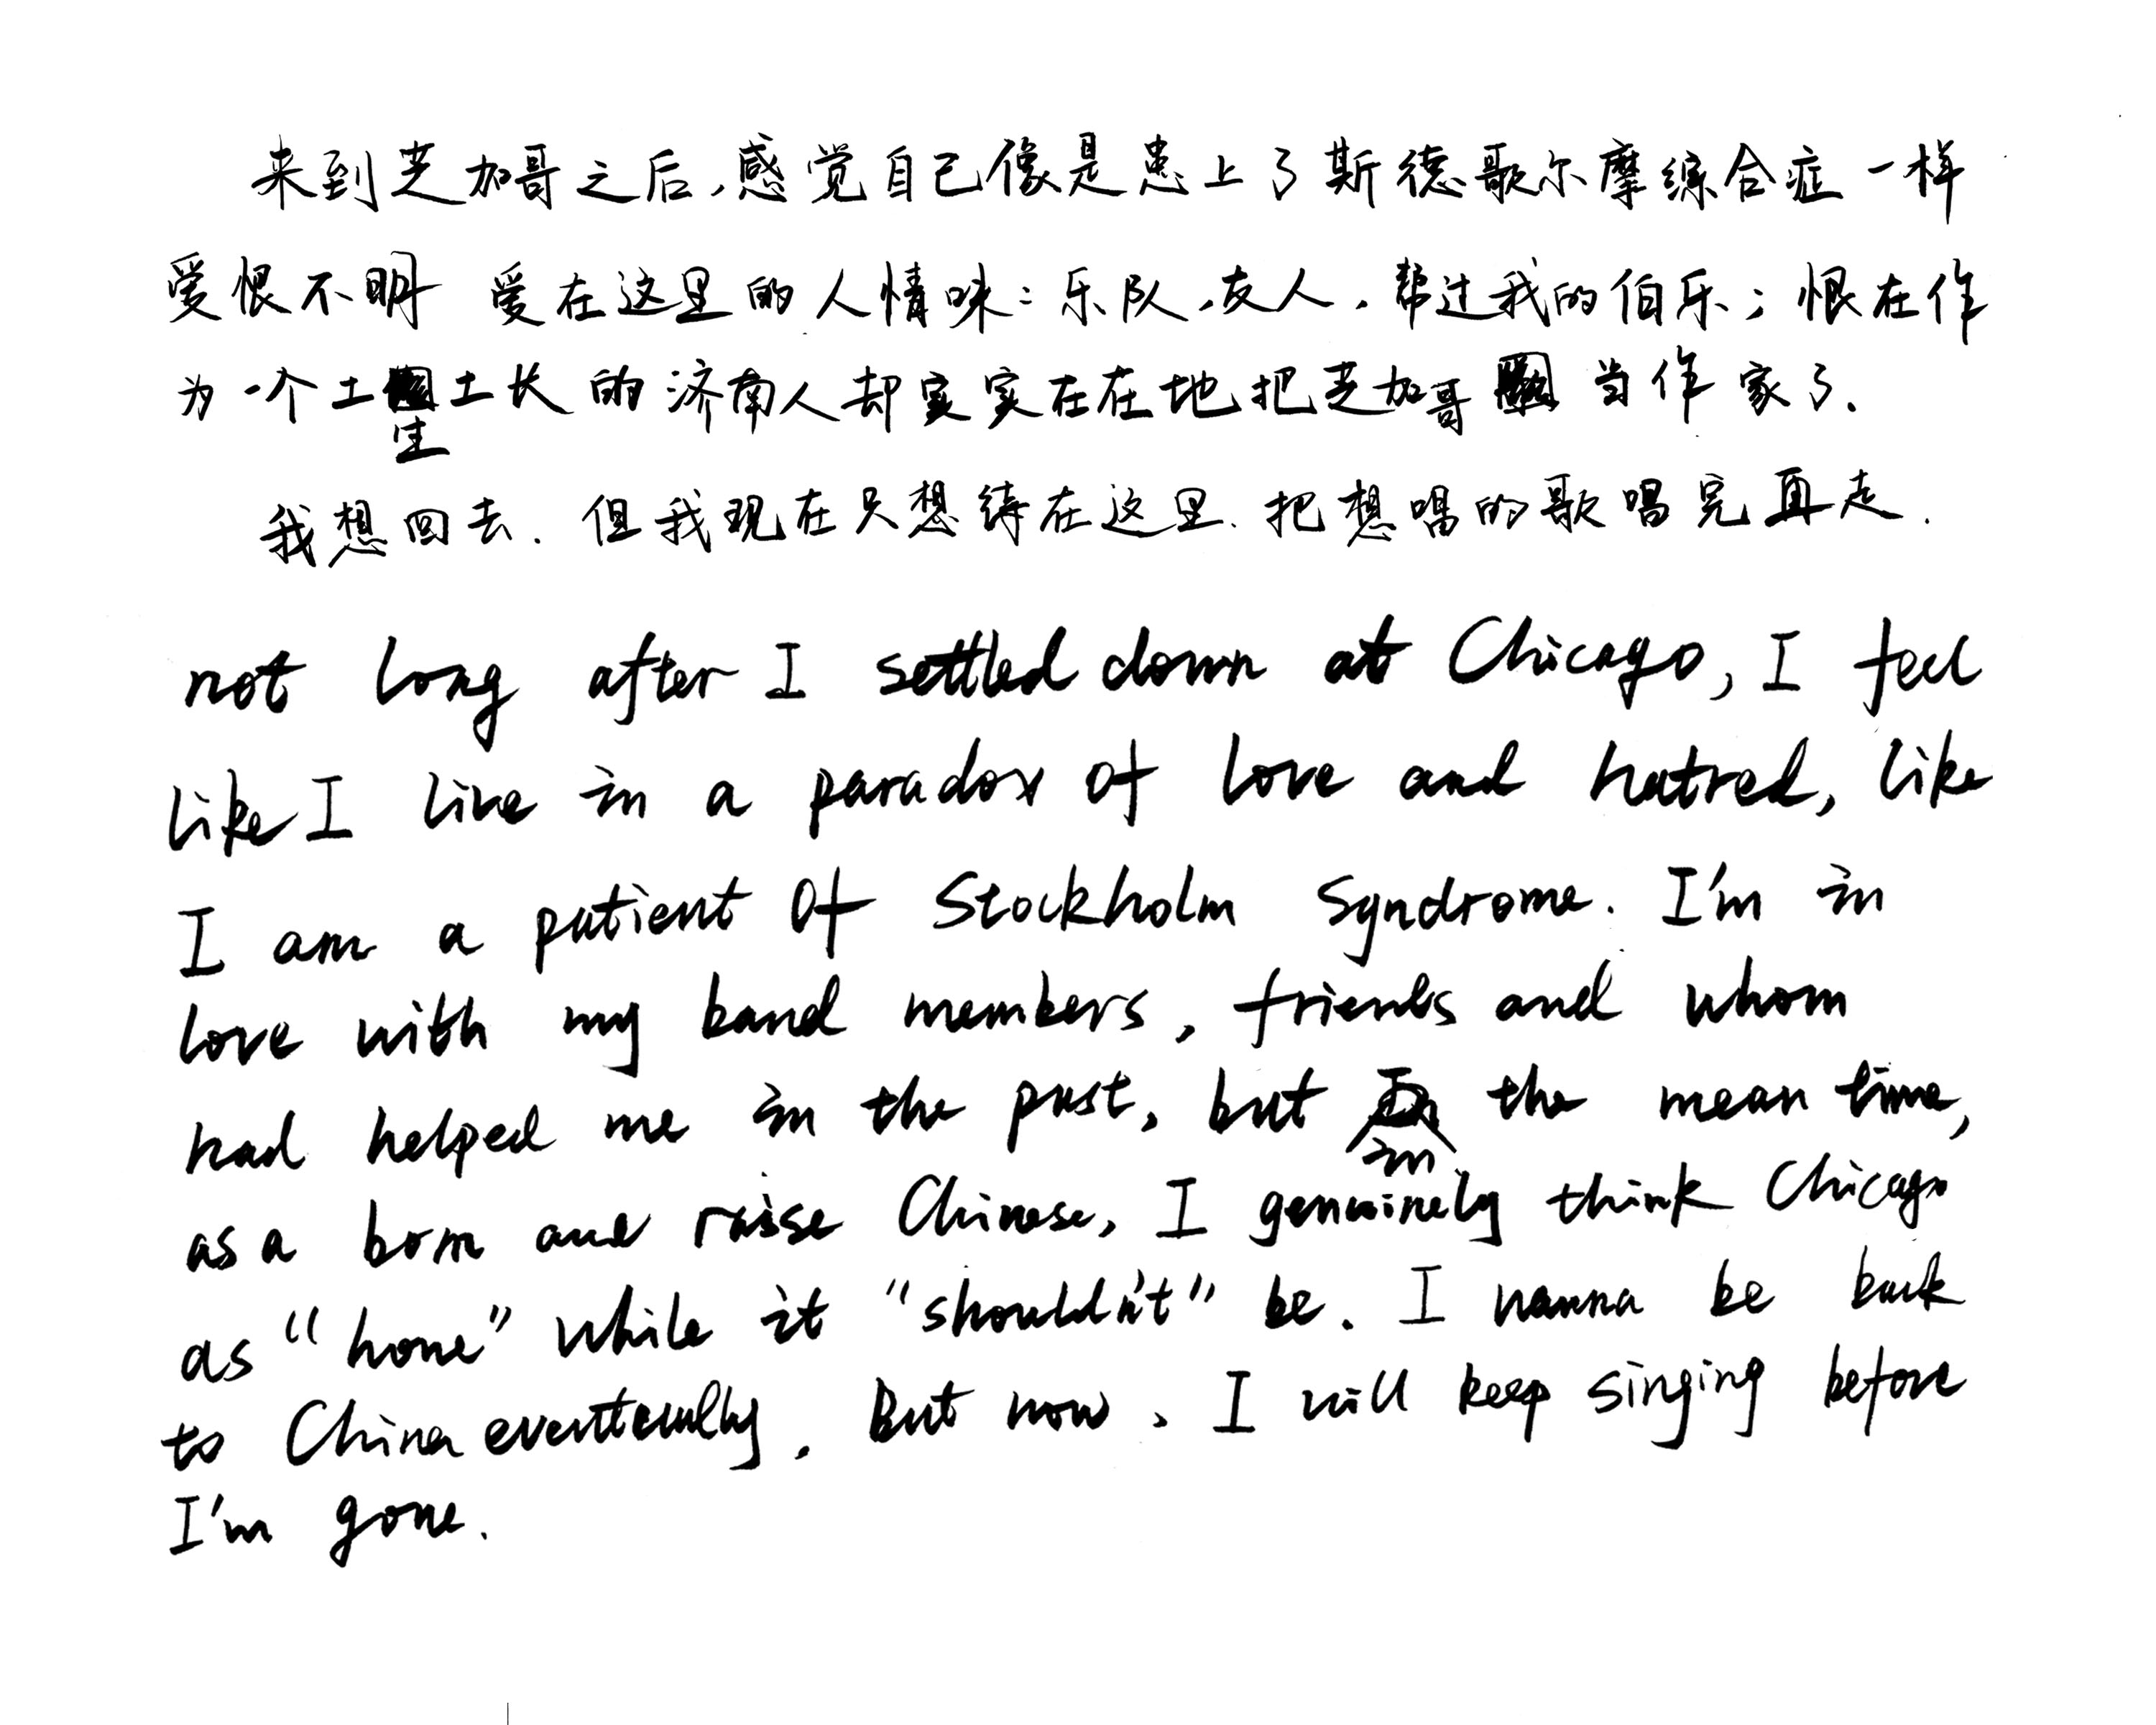 来到芝加哥之后,感觉自己像是患上了斯德歌尔摩综合症一样
爱恨不明 爱在这里的人情味:乐队,友人,帮过我的伯乐;恨在作
为一个土生土长的济南人却实实在在地把芝加哥当作家了.
我想回去.但我现在只想待在这里.把想唱的歌唱完再走.
not long after I settled down at Chicago, I feel
like I live in a paradox of love and hatred, like
I am a patient of Stockholm Syndrome. I'm in
love with my band members, friends and whom
had helped me in the past, but in the mean time,
as a born and raise Chinese, I genuinely think Chicago
as "home" while it "shouldn't" be. I wanna be back
to China eventually. But now, I will keep singing before
I'm gone.